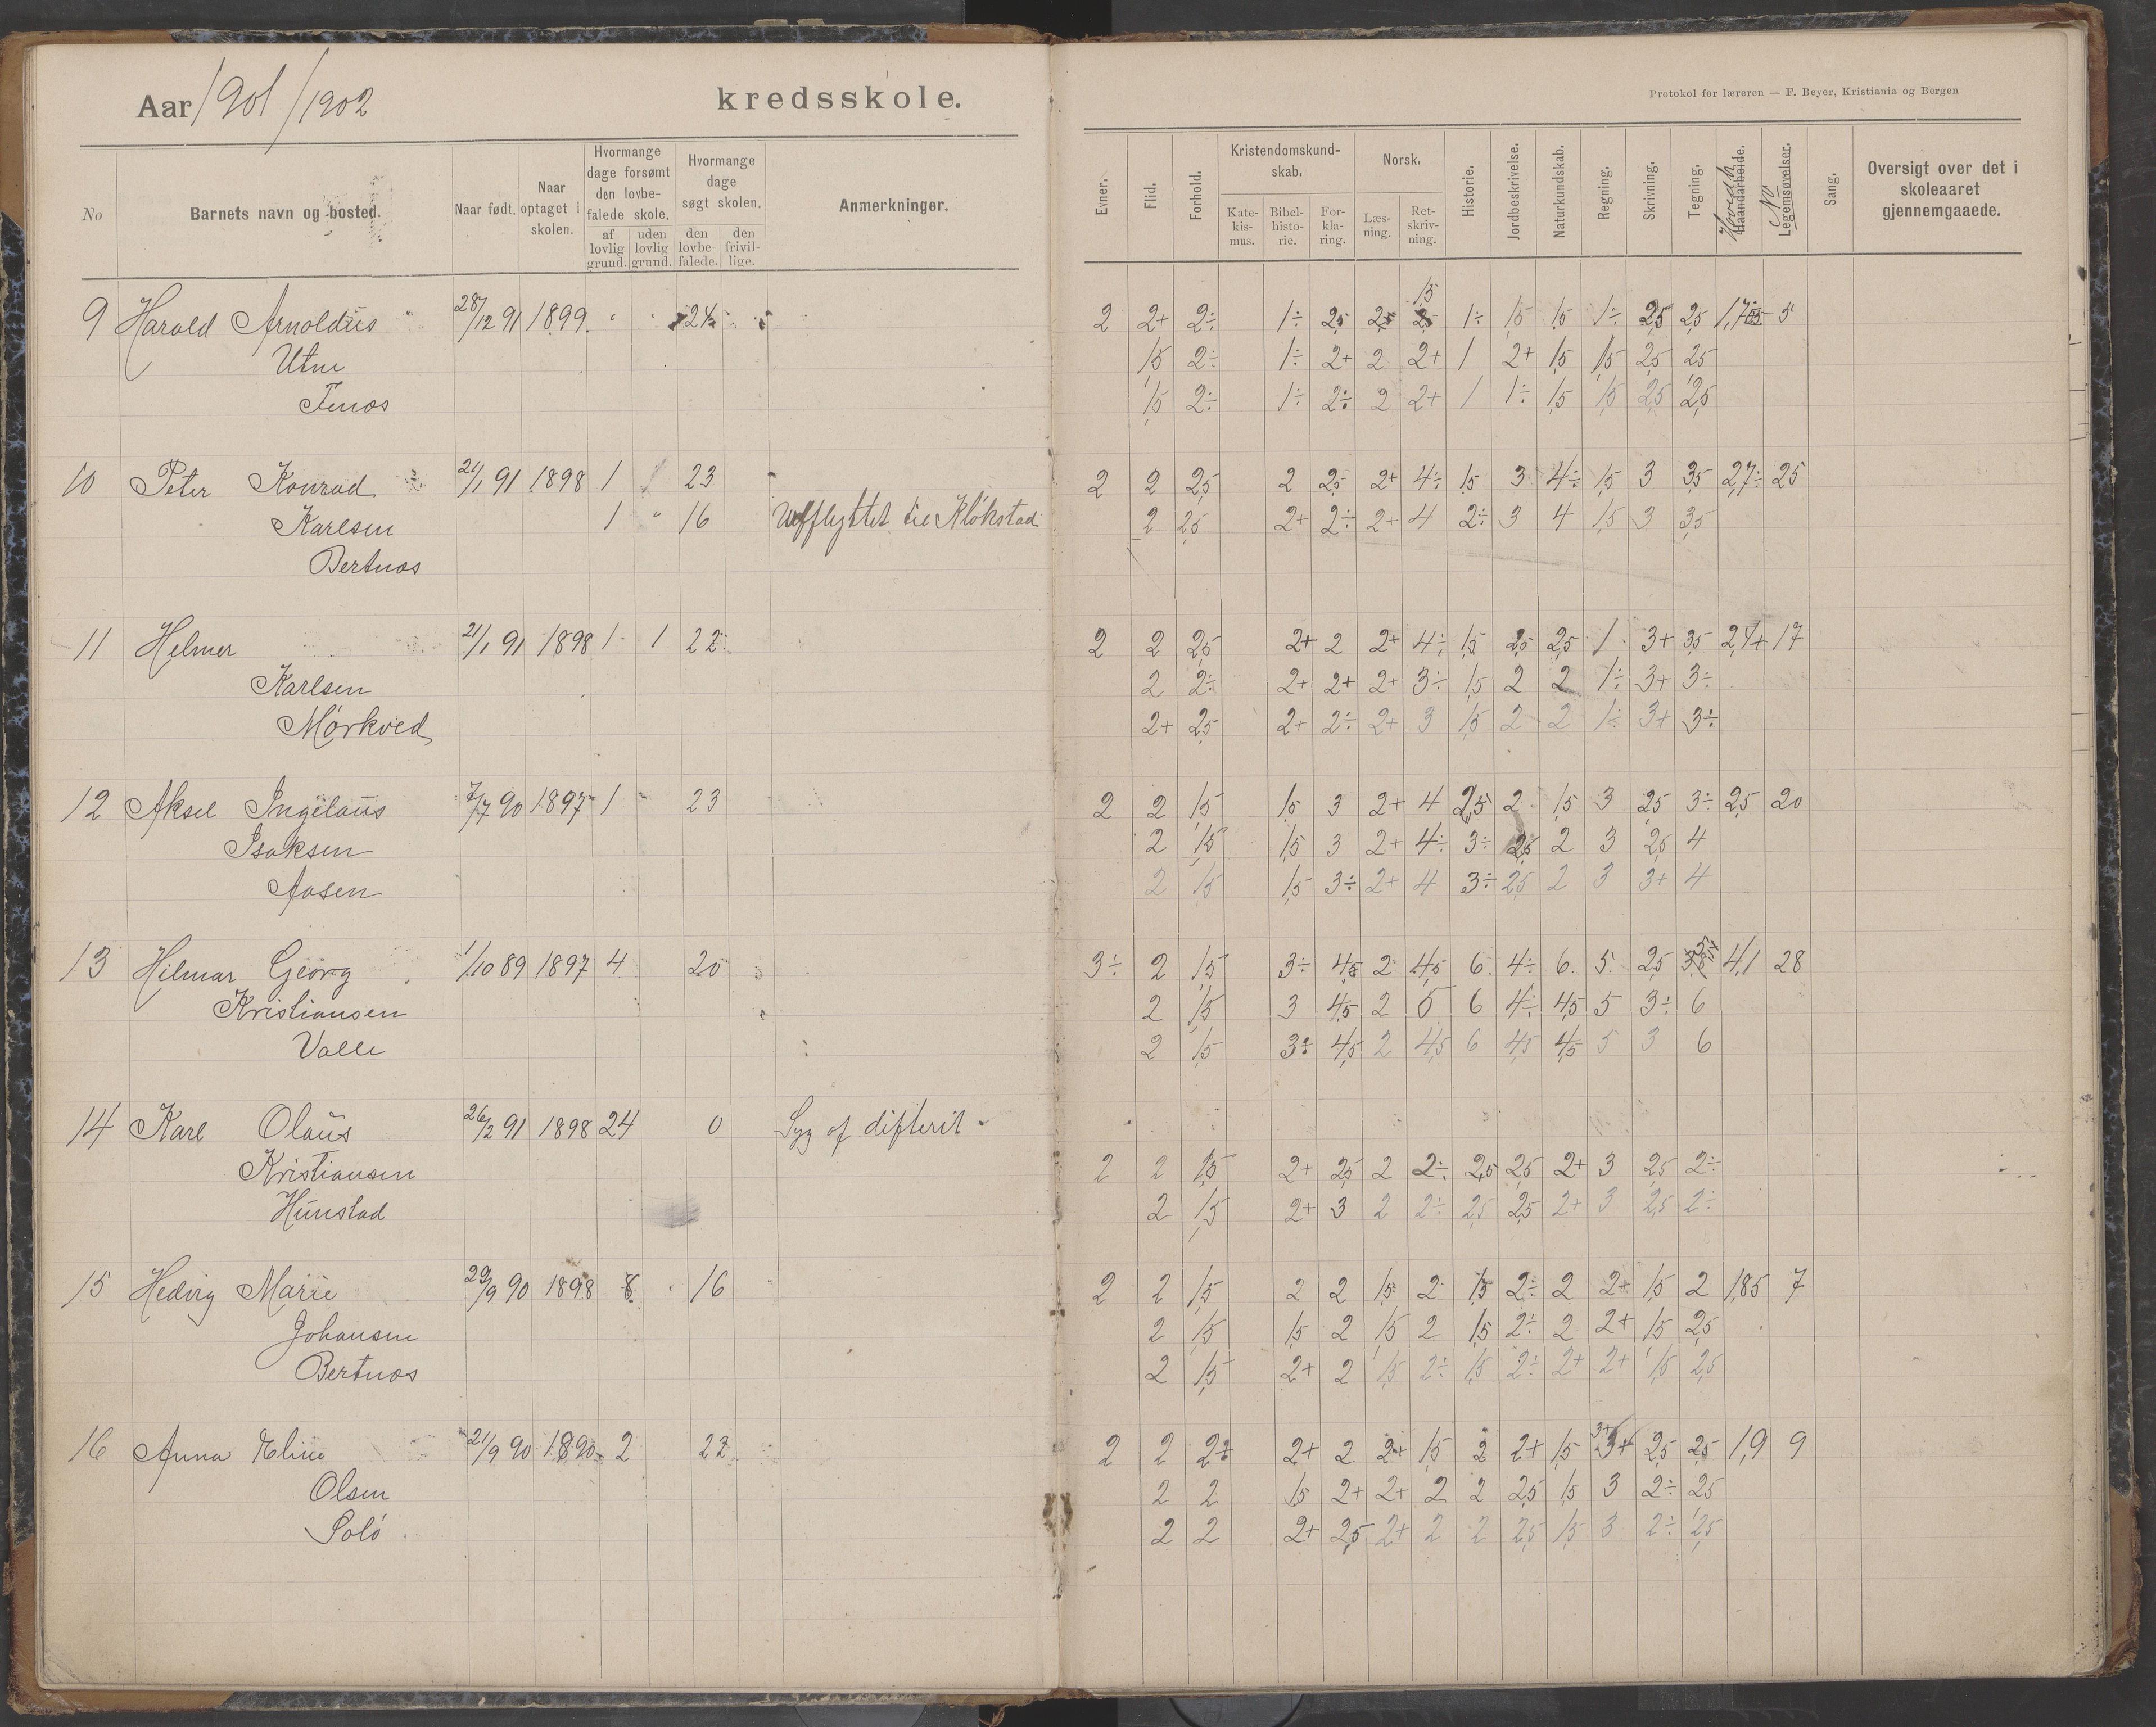 Aar 1901/1902 kredsskole.
Protokol for læreren — F. Beyer, Kristiania og Bergen
No Barnets navn og bosted. Naar født. Naar optaget i skolen. Hvormange dage forsømt den lovbefalede skole. af lovlig grund. uden lovlig grund. Hvormange dage søgt skolen. den lovbefalede. den frivillige. Anmerkninger.
Evner. Flid. Forhold. Kristendomskundskab. Katekismus. Bibelhistorie. Forklaring. Norsk. Læsning. Retskrivning. Historie. Jordbeskrivelse. Naturkundskab. Regning. Skrivning. Tegning. Haandarbeide. Hovedk. Legemsøvelser. No Sang. Oversigt over det i skoleaaret gjennemgaaede.
9 Harald Arnoldus 28/12 91 1899 24 2 2+ 2÷ 1÷ 2,5 2,5 1,5 1÷ 1,5 1,5 1÷ 2,5 2,5 5
Utne 1,5 2÷ 1÷ 2+ 2 2+ 1 2+ 1,5 1,5 2,5 2,5
Tenæs 1,5 2÷ 1÷ 2÷ 2 2+ 1 1÷ 1,5 1,5 2,5 2,5
10 Peter Konrad 21/1 91 1898 1 23 2 2 2,5 2 2,5 2+ 4÷ 1,5 3 4÷ 1,5 3 3,5 2,7÷ 25
Karlsen 1 " 16 Udflyttet til Kløkstad 2 2,5 2+ 2÷ 2+ 4 2÷ 3 4 1,5 3 3,5
Bertnæs
11 Helmer 21/1 91 1898 1 1 22 2 2 2,5 2+ 2 2+ 4÷ 1,5 2,5 2,5 1 3+ 3,5 2,4+ 17
Karlsen 2 2÷ 2+ 2+ 2+ 3÷ 1,5 2 2 1÷ 3+ 3÷
Mørkved 2+ 2,5 2+ 2÷ 2+ 3 1,5 2 2 1÷ 3+ 3÷
12 Aksel Ingelaus 7/7 90 1897 1 " 23 2 2 1,5 1,5 3 2+ 4 2,5 2 1,5 3 2,5 3÷ 2,5 20
Isaksen 2 1,5 1,5 3 2+ 4÷ 3÷ 2,5 2 3 2,5 4
Aasen 2 1,5 1,5 3÷ 2+ 4 3÷ 2,5 2 3 3+ 4
13 Hilmar Georg 1/10 89 1897 4 20 3÷ 2 1,5 3÷ 4,5 2 4,5 6 4÷ 6 5 2,5 4,1 28
Kristiansen 2 1,5 3 4,5 2 5 6 4÷ 4,5 5 3÷ 6
Valle 2 1,5 3÷ 4,5 2 4,5 6 4,5 4,5 5 3 6
14 Karl Olaus 26/2 91 1898 24 0 Syg af difterit
Kristiansen 2 2 1,5 2+ 2,5 2 2÷ 2,5 2,5 2+ 3 2,5 2÷
Hunstad 2 1,5 2+ 3 2 2÷ 2,5 2,5 2+ 3 2,5 2÷
15 Hedvig Marie 29/9 90 1898 8 16 2 2 1,5 2 2 1,5 2 1,5 2÷ 2 2+ 1,5 2 1,85 7
Johansen 2 1,5 1,5 2 1,5 2 1,5 2÷ 2 2+ 1,5 2,5
Bertnæs 2 1,5 2+ 2 1,5 2÷ 1,5 2÷ 2+ 2+ 1,5 2,5
16 Anna Eline 21/9 90 1890 2 22 2 2 2÷ 2+ 2 2+ 1,5 2 2+ 1,5 3+ 2,5 2,5 1,9 9
Olsen 2 2 1,5 2+ 2+ 2 2 2,5 1,5 3 2÷ 2,5
Solø 2 2 2+ 2,5 2+ 2 2 2,5 1,5 3 2÷ 2,5